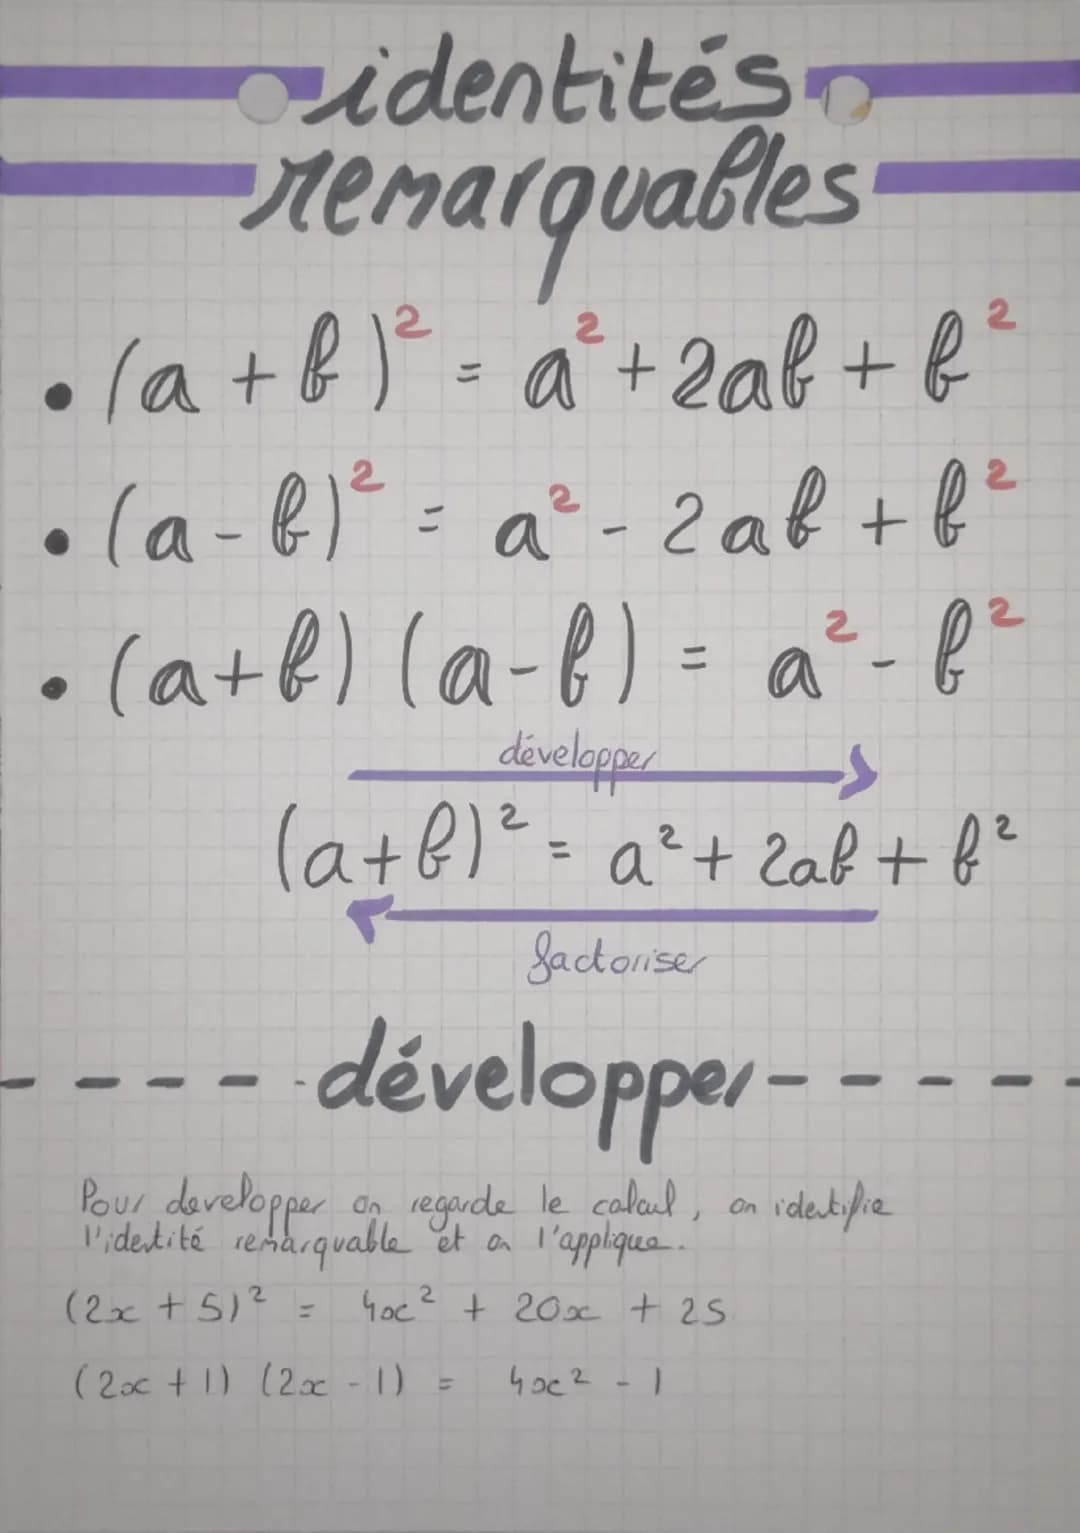 identités
remarquables
• (a + b)² = a² + 2ab + b²
• (a - b)² = a² - 2ab + b²
• (a + b) (a - b) = a² - b²
développer
(a + b)² = a² + 2ab + b²
factoriser
développer
Pour developper on regarde le calcul, on identifie
l'identité remarquable et on l'applique.
(2x + 5)² = 4x² + 20x + 25
(2x + 1) (2x - 1) = 4x² - 1